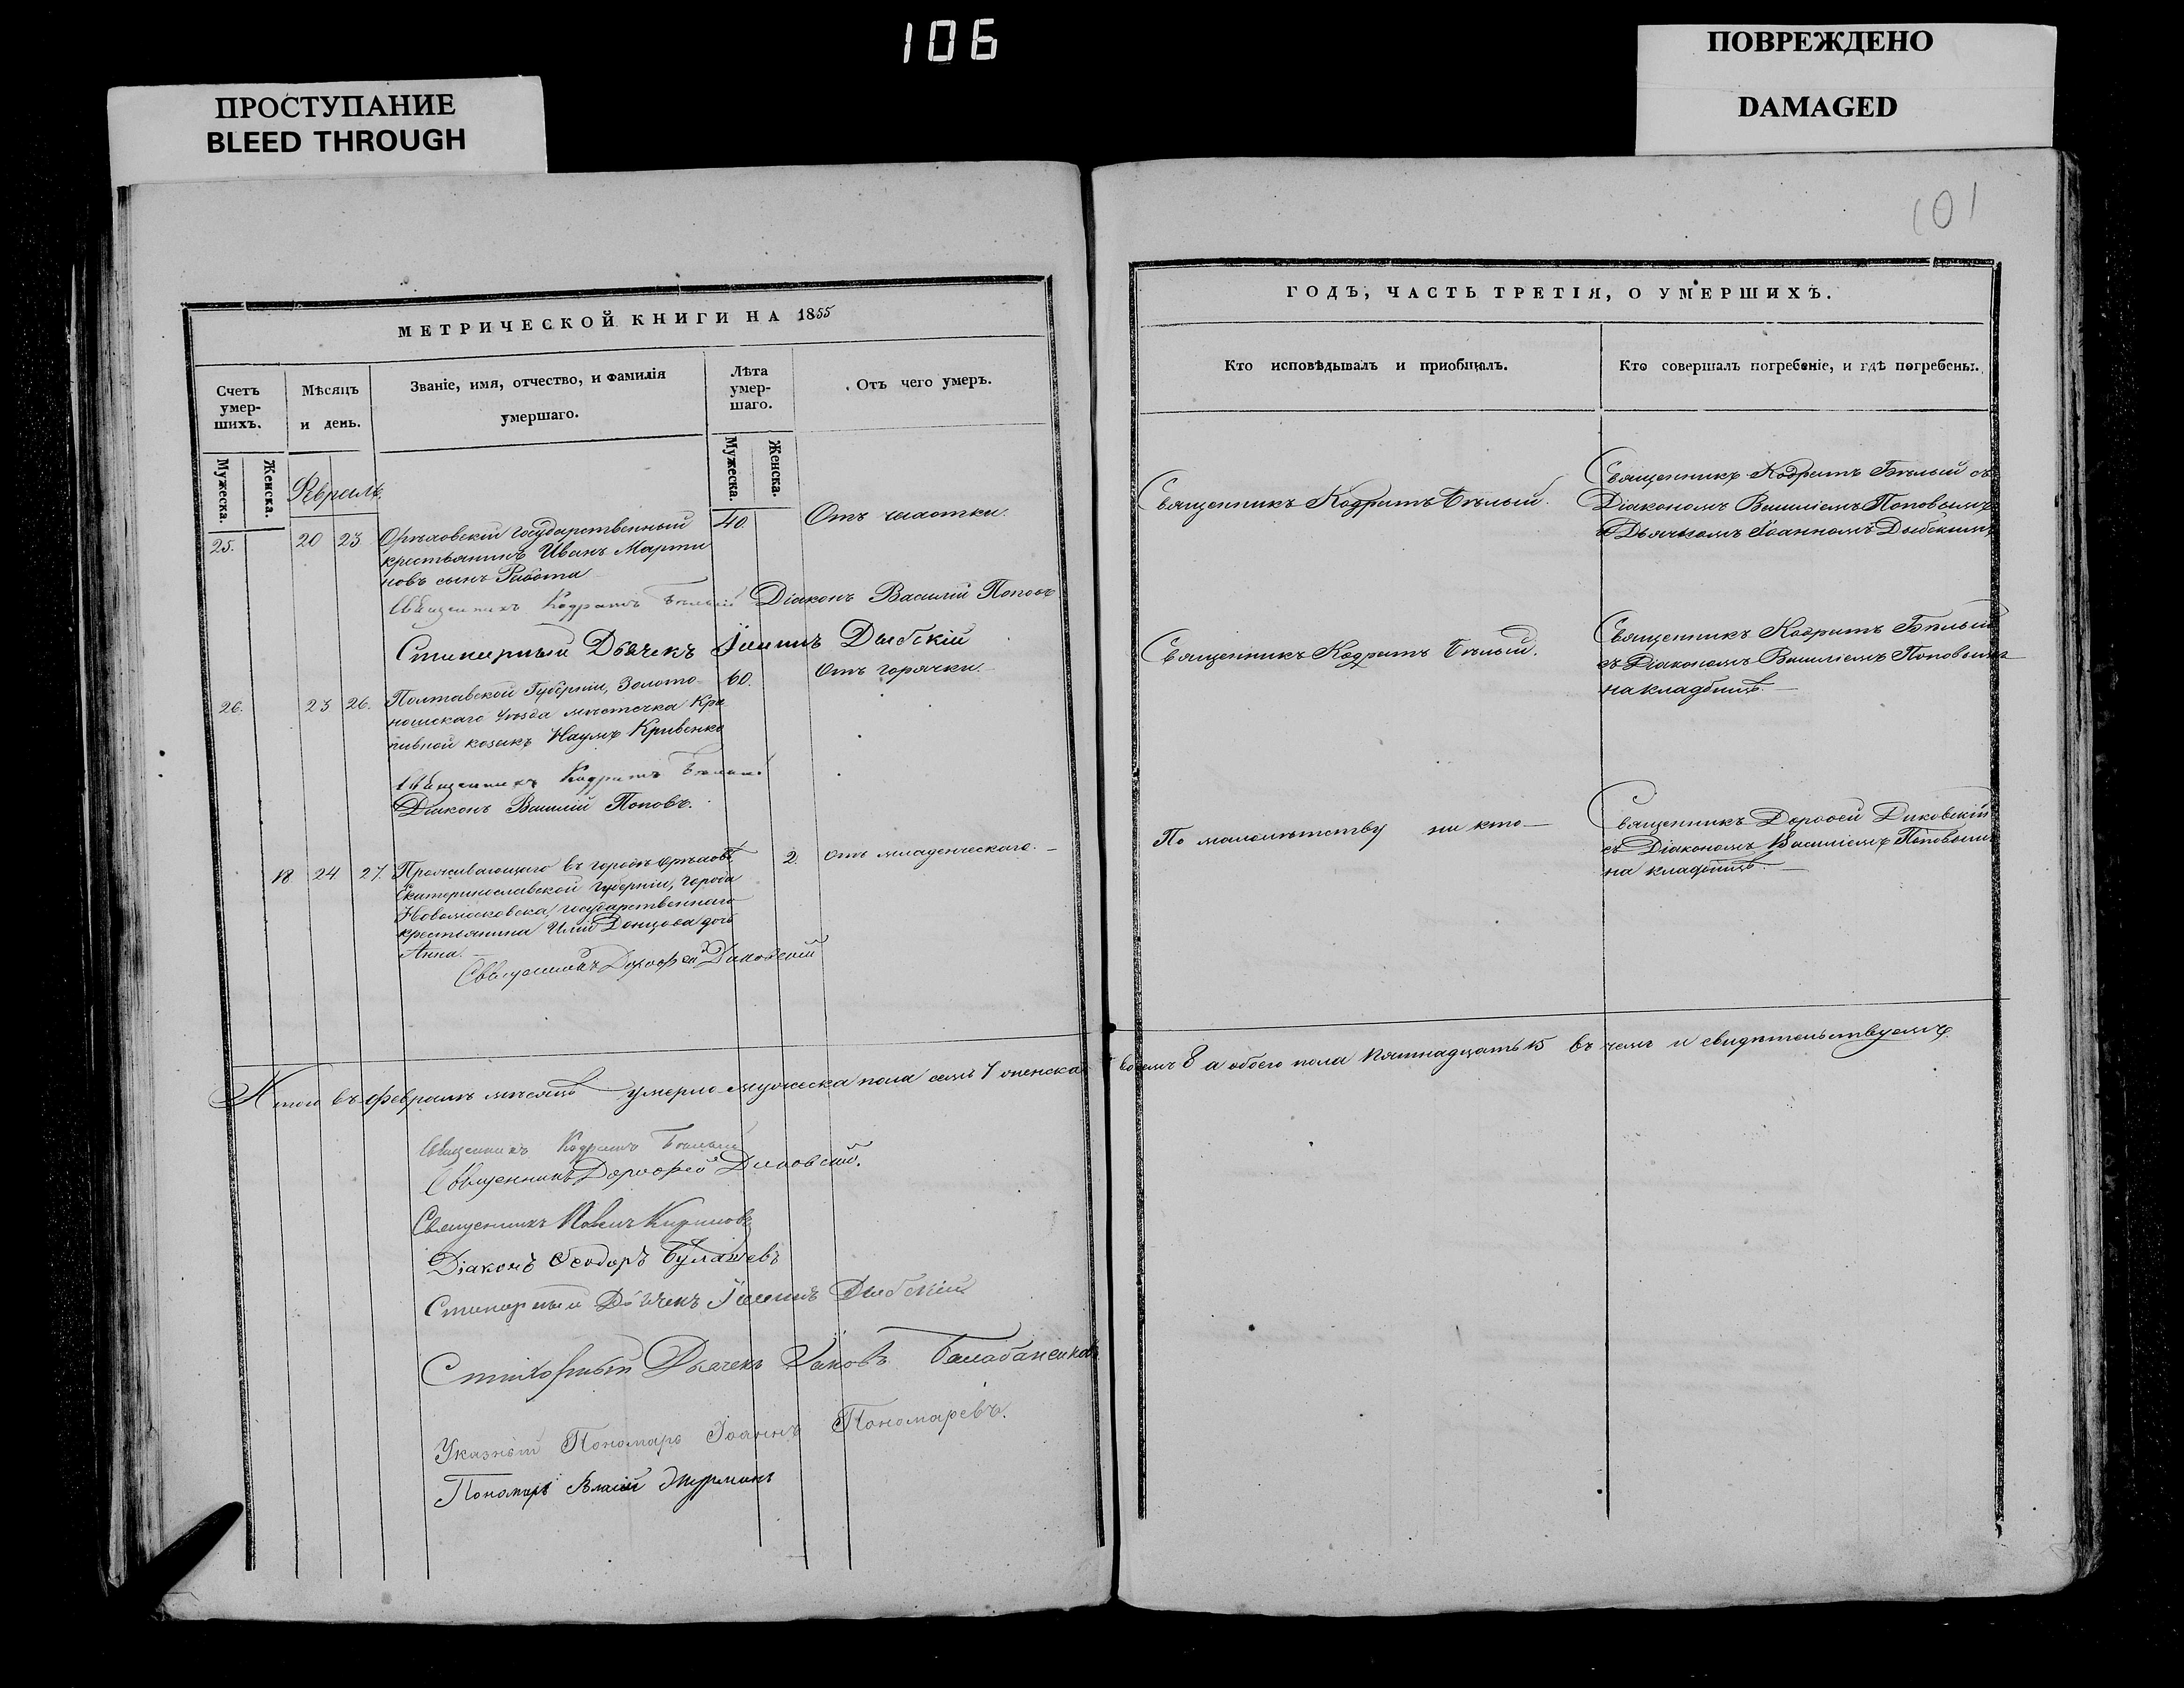 106
ПРОСТУПАНИЕ
BLEED THROUGH
ПОВРЕЖДЕНО
DAMAGED
101
МЕТРИЧЕСКОЙ КНИГИ НА 1855
Счетъ умер-шихъ.
Мѣсяцъ и день.
Званіе, имя, отчество, и фамилія умершаго.
Лѣта умер-шаго.
Отъ чего умеръ.
Мужеска.
Женска.
Мужеска.
Женска.
Февраль.
25. 20 23 Орѣховскій государственный 40. Отъ чахотки.
крестьянинъ Иванъ Марти
новъ сынъ Работа
Священникъ Кодратъ Бѣлый Діаконъ Василій Поповъ
Стихарный Дьячекъ Іоаннъ Дыбскій
26. 23 26. Полтавской Губерніи, Золото- 60. Отъ горячки.
ношскаго Уѣзда мѣстечка Кро
пивной козакъ Наумъ Кривенко
Священникъ Кодратъ Бѣлый
Діаконъ Василій Поповъ.
18 24 27. Проживающаго въ городѣ Орѣховѣ 2. отъ младенческаго.
Екатеринославской Губерніи, города
Новомосковска, государственнаго
крестьянина Иліи Донцова дочь
Анна.
Священникъ Дорофей Диковскій
Итого въ Февралѣ мѣсяцѣ умерло мужеска пола семь 7 женска восемь 8 а обоего пола пятнадцать 15 въ чемъ и свидѣтельствуемъ.
Священникъ Кодратъ Бѣлый
Священникъ Дорофей Диковскій.
Священникъ Павелъ Кириловъ
Діаконъ Ѳеодоръ Булашевъ
Стихарный Дьячекъ Іоаннъ Дыбскій
Стихарный Дьячекъ Іаковъ Балабаненковъ
Указный Пономарь Іоаннъ Пономаревъ.
Пономарь
ГОДЪ, ЧАСТЬ ТРЕТІЯ, О УМЕРШИХЪ.
Кто исповѣдывалъ и пріобщалъ.
Кто совершалъ погребеніе, и гдѣ погребены.
Священникъ Кодратъ Бѣлый.
Священникъ Кодратъ Бѣлый съ
Діакономъ Василіемъ Поповымъ
и Дьячкомъ Іоанномъ Дыбскимъ
Священникъ Кодратъ Бѣлый.
Священникъ Кодратъ Бѣлый
съ Діакономъ Василіемъ Поповымъ
на кладбищѣ.
По малолѣтству ни кто
Священникъ Дорофей Диковскій
съ Діакономъ Василіемъ Поповымъ
на кладбищѣ.